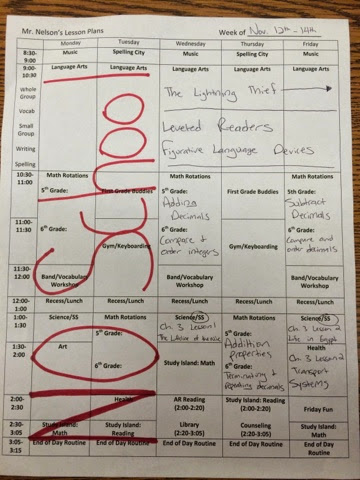 Mr. Nelson's Lesson Plans Week of Nov. 12th - 14th
Monday Tuesday Wednesday Thursday Friday
8:30-9:00 Music Spelling City Music Spelling City Music
9:00-10:30 Language Arts Language Arts Language Arts Language Arts Language Arts
Whole Group The Lightning Thief
Vocab
Small Group Leveled Readers
Writing Figurative Language Devices
Spelling
10:30-11:00 Math Rotations Math Rotations Math Rotations
5th Grade: First Grade Buddies 5th Grade: First Grade Buddies 5th Grade:
Adding Decimals Subtract Decimals
11:00-11:30 6th Grade: 6th Grade: 6th Grade:
Gym/Keyboarding Compare + order integers Gym/Keyboarding Compare and order decimals
11:30-12:00 Band/Vocabulary Workshop Band/Vocabulary Workshop Band/Vocabulary Workshop
12:00-1:00 Recess/Lunch Recess/Lunch Recess/Lunch Recess/Lunch Recess/Lunch
1:00-1:30 Science/SS Math Rotations Science/SS Math Rotations Science/SS
5th Grade: Ch. 3 Lesson 1 5th Grade: Ch. 3 Lesson 2
Addition properties Life in Egypt
1:30-2:00 Art 6th Grade: Study Island: Math 6th Grade: Health
Terminating + repeating decimals Ch. 3 Lesson 2
Transport Systems
2:00-2:30 Health AR Reading (2:00-2:20) Study Island: Reading (2:00-2:20) Friday Fun
2:30-3:05 Study Island: Math Study Island: Reading Library (2:20-3:05) Counseling (2:20-3:05) Study Island: Math
3:05-3:15 End of Day Routine End of Day Routine End of Day Routine End of Day Routine End of Day Routine
No School